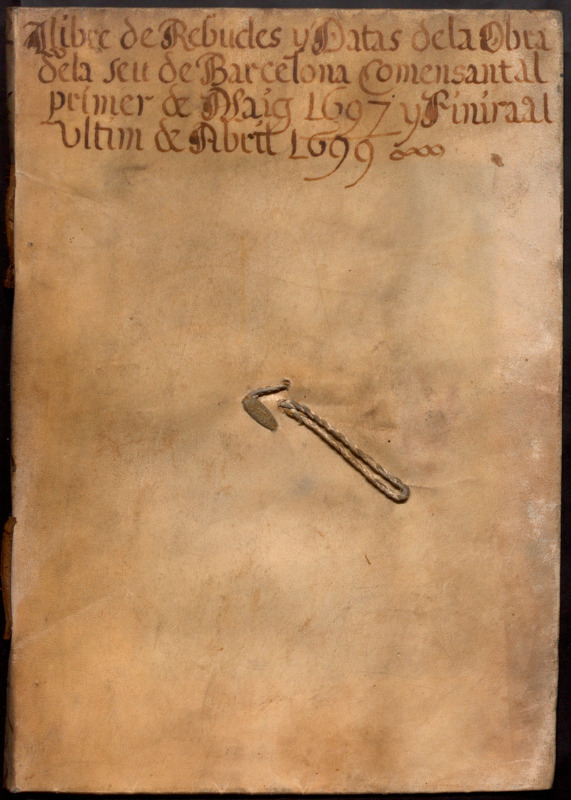 Llibre de Rebudes y Datas dela Obra
dela seu de Barcelona Comensant al
primer de Maig 1697 y Finira al
ultim de Abril 1699